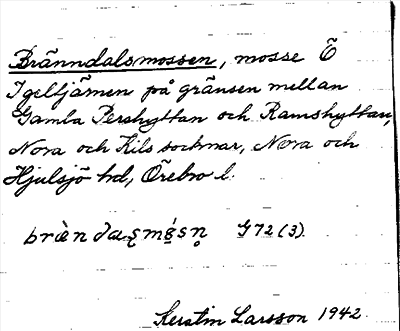 Bränndalsmossen, mosse Ö
Igeltjärnen på gränsen mellan
Gamla Pershyttan och Ramshyttan,
Nora och Kils socknar, Nora och
Hjulsjö hd, Örebro l.
G72(3).
Kerstin Larsson 1942.